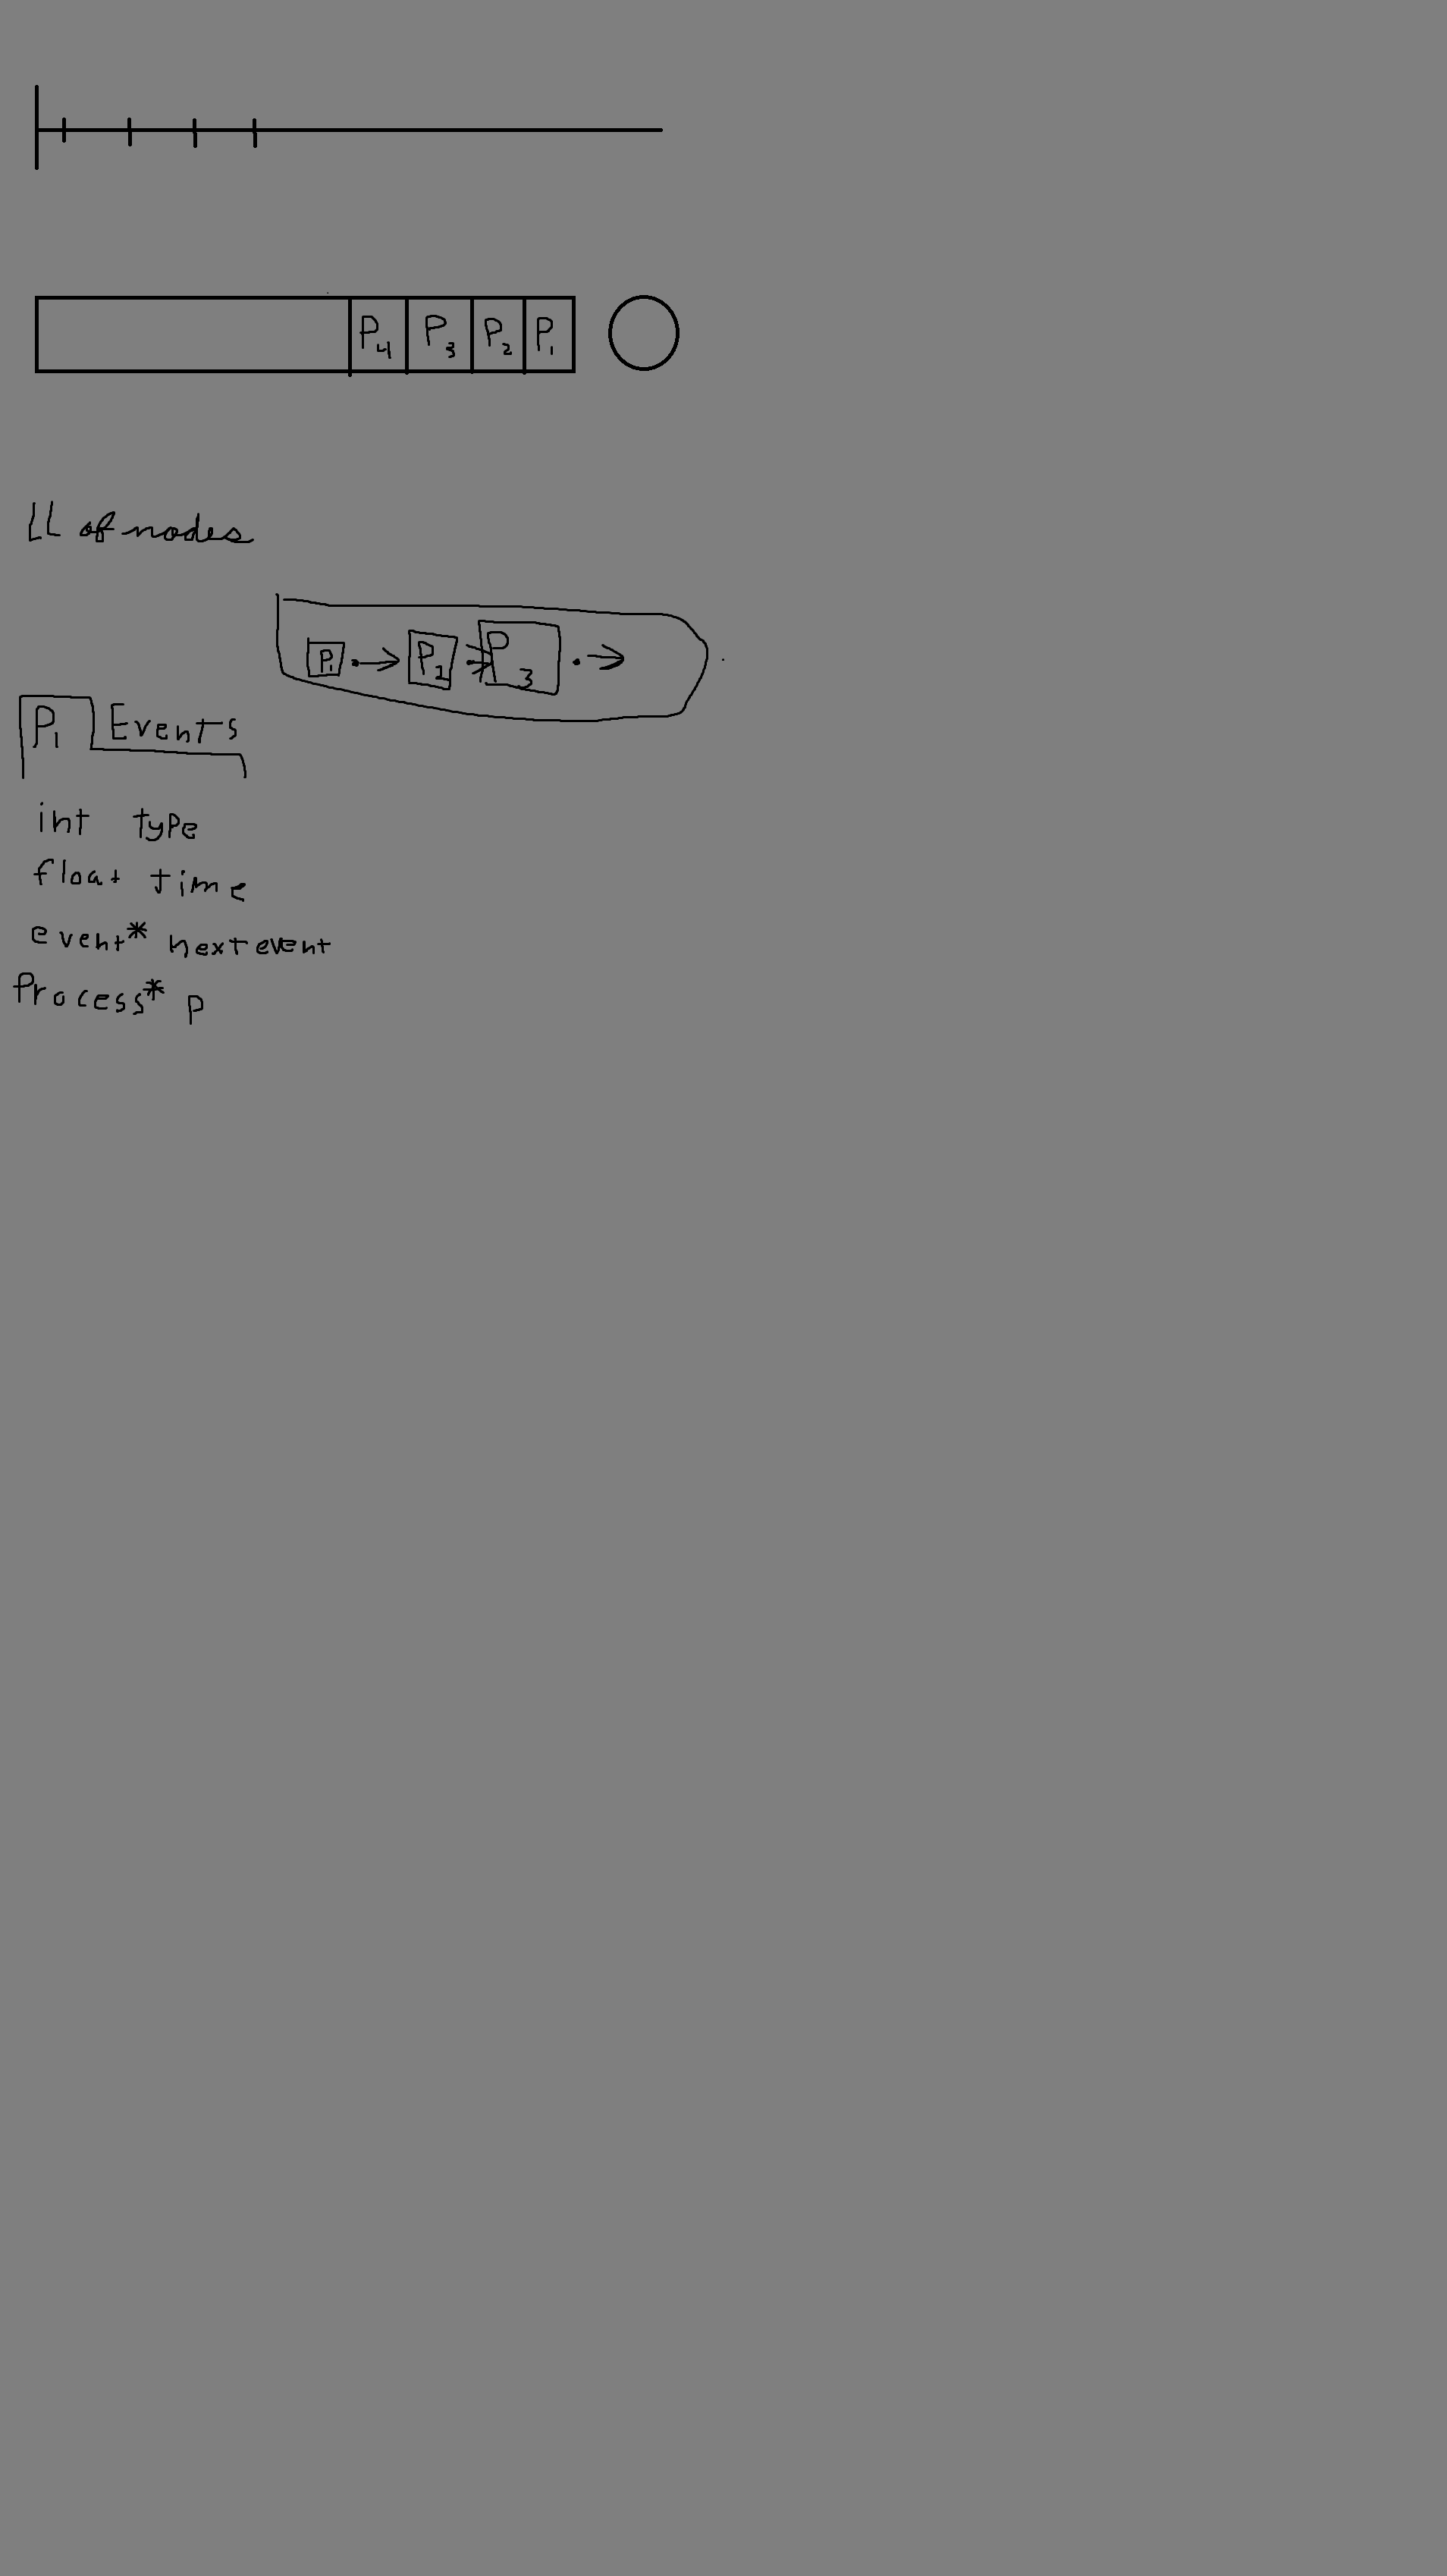 P4 P3 P2 P1
LL of nodes
P1 P2 P3
P1 Events
int type
float time
event* nextevent
Process* p